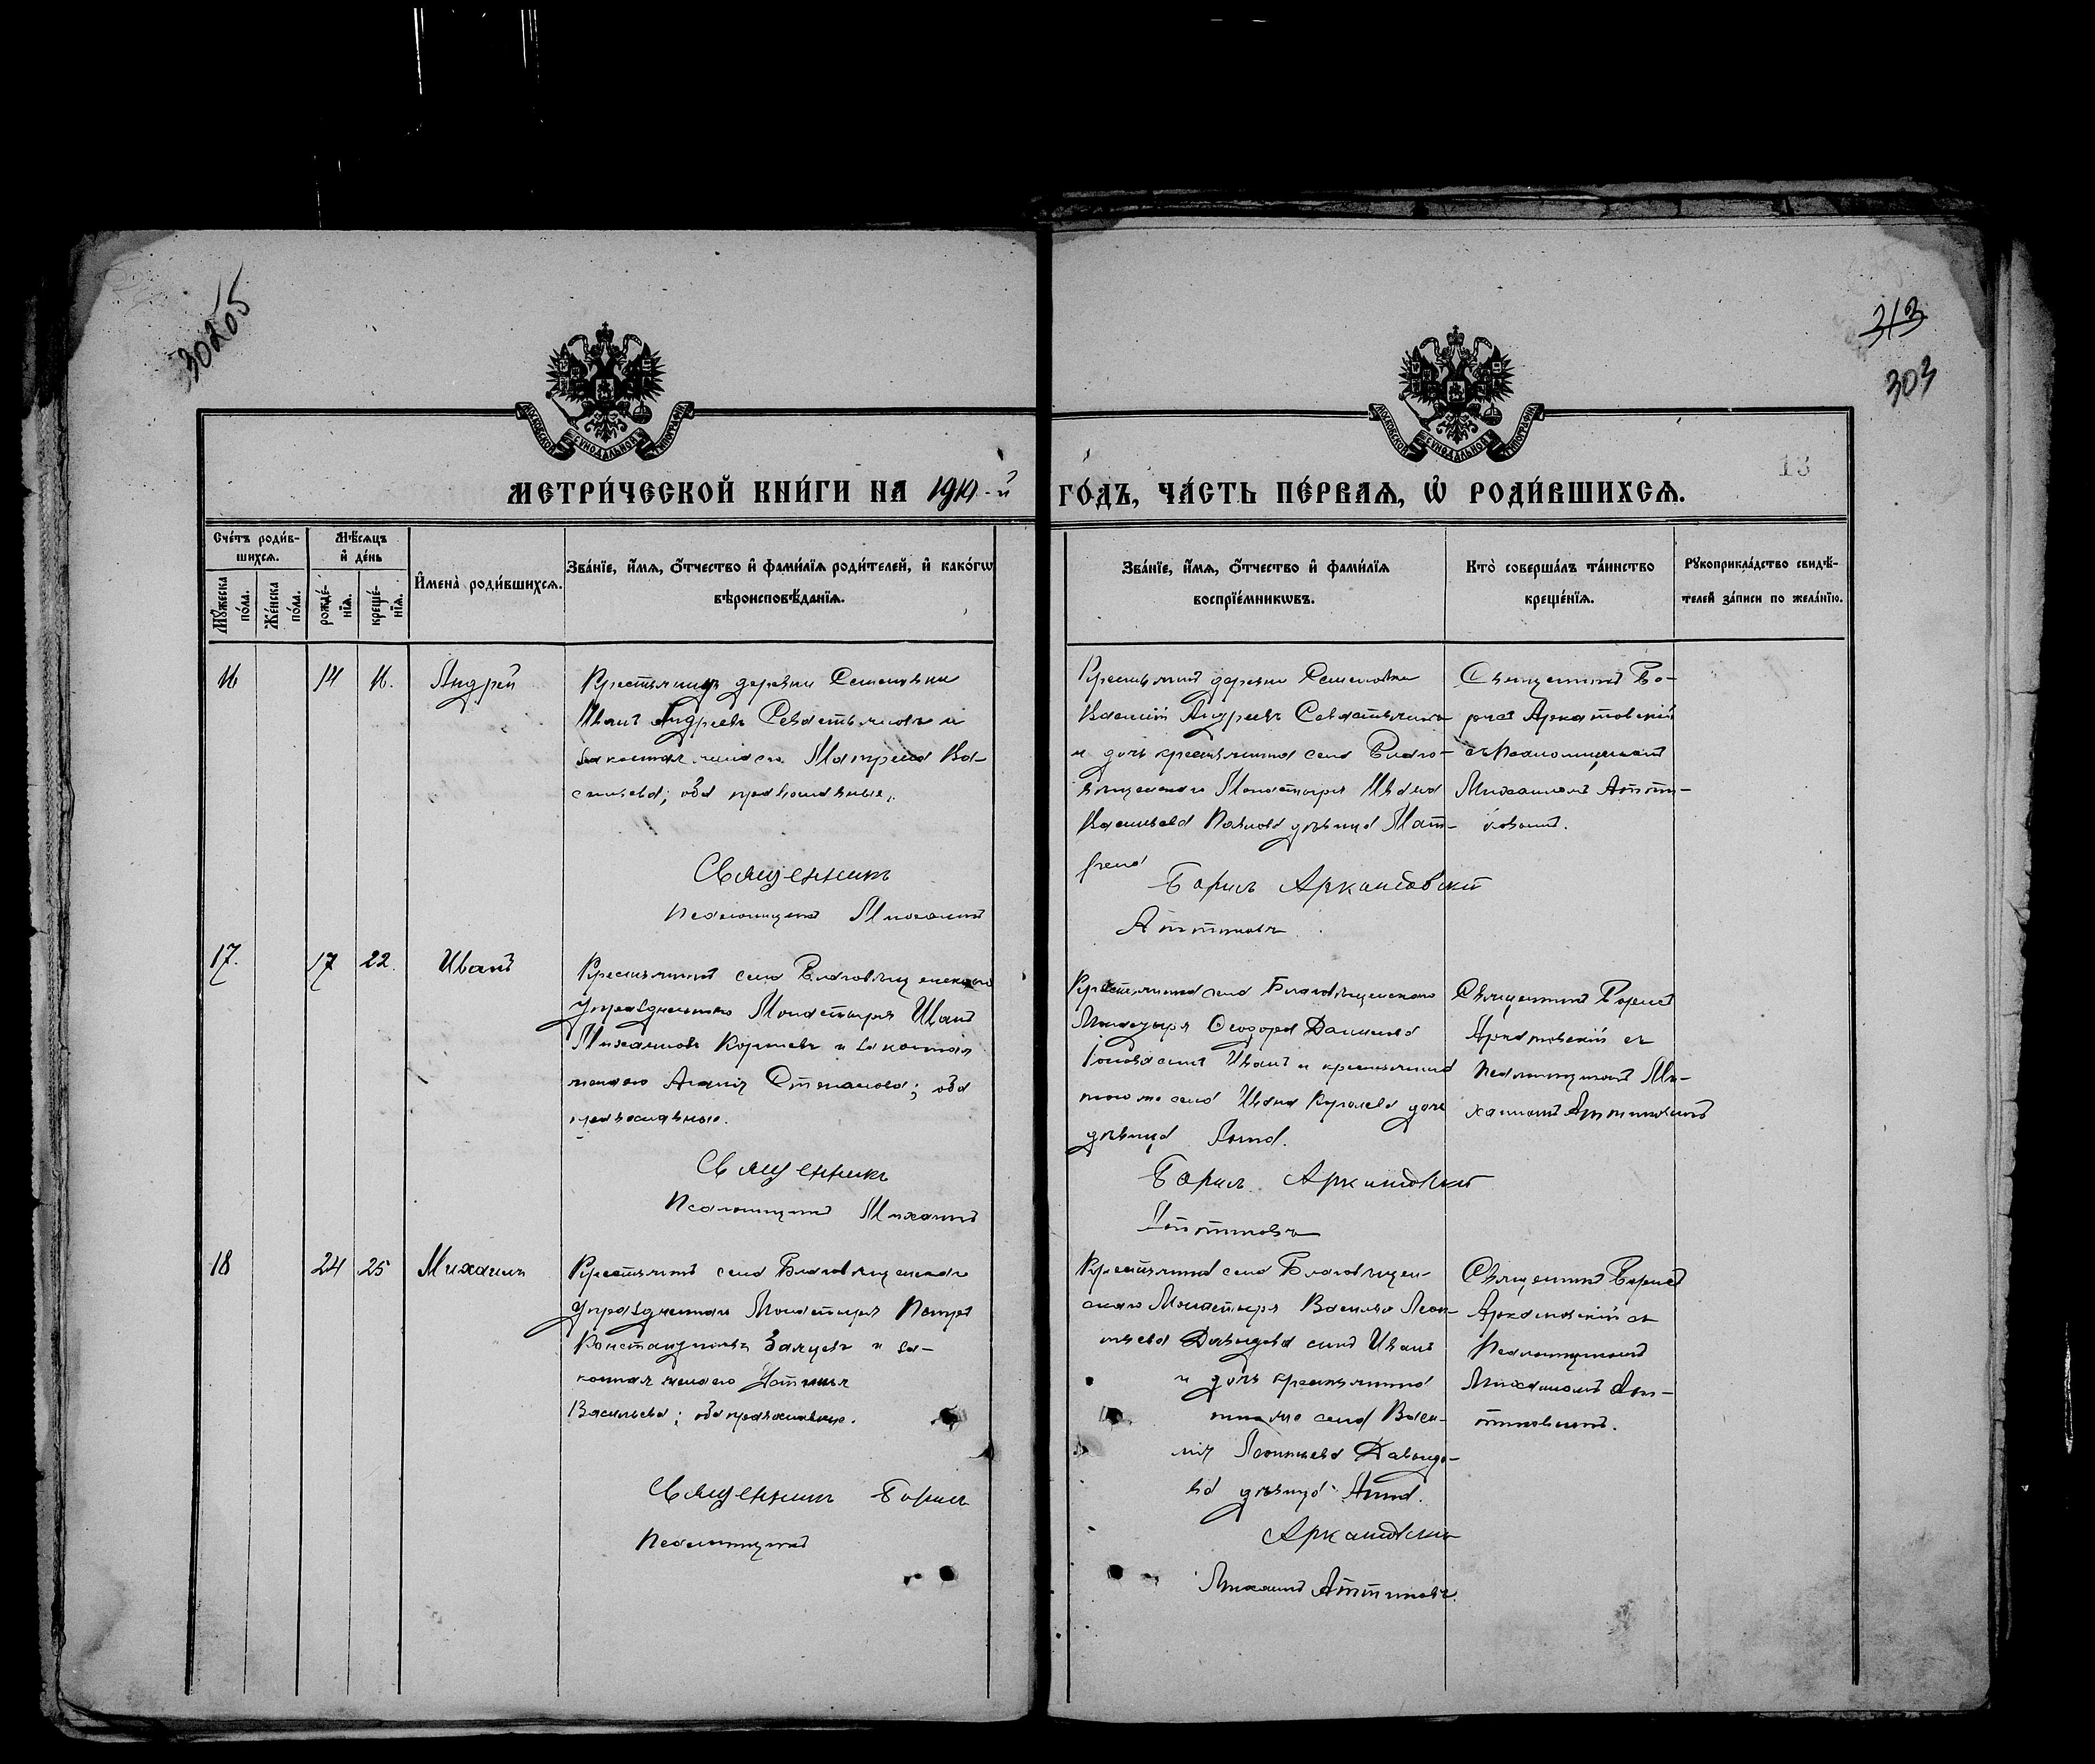 30265
313
303
13
МОСКОВСКОЙ СѴНОДАЛЬНОЙ ТИПОГРАФІИ
МОСКОВСКОЙ СѴНОДАЛЬНОЙ ТИПОГРАФІИ
МЕТРИ́ЧЕСКОЙ КНИ́ГИ НА 1914-й ГО́ДЪ, ЧА́СТЬ ПЕ́РВАѦ, Ѡ РОДИ́ВШИХСѦ.
Сче́тъ роди́в-
шихсѧ.
Мꙋ́жеска
по́ла.
Же́нска
по́ла.
Мѣ́сѧцъ
и҆ де́нь
рожде́-
нїѧ.
креще́-
нїѧ.
И҆мена̀ роди́вшихсѧ.
Зва́нїе, и҆́мѧ, ѻ҆́тчество и҆ фами́лїѧ роди́телей, и҆ како́гѡ
вѣроисповѣ́данїѧ.
Зва́нїе, и҆́мѧ, ѻ҆́тчество и҆ фами́лїѧ
воспрїе́мникѡвъ.
Кто̀ соверша́лъ та́инство
креще́нїѧ.
Рꙋкоприкла́дство свидѣ́-
телей за́писи по жела́нїю.
16
14
16.
Андрей
Крестьянинъ деревни Семеновки
Иванъ Андреевъ Севастьяновъ и
законная жена его Матрена Ва-
сильева; оба православные.
Священникъ
Псаломщикъ Михаилъ
Крестьянинъ деревни Семеновки
Василій Андреевъ Севастьяновъ
и дочь крестьянина села Благо-
вѣщенскаго Монастыря Ивана
Васильева дѣвица Мат-
рена
Борисъ Аркатовскій
Аттиковъ
Священникъ Бо-
рисъ Аркатовскій
съ псаломщикомъ
Михаиломъ Атти-
ковымъ.
17.
17
22.
Иванъ
Крестьянинъ села Благовѣщенскаго
Упраздненнаго Монастыря Иванъ
Михаиловъ и законная
жена его Степанова; оба
православные.
Священникъ
Псаломщикъ Михаилъ
Крестьянина села Благовѣщенскаго
Монастыря Ѳеодора Данилова
сынъ Иванъ и крестьянина
того же села Ивана дочь
дѣвица
Борисъ Аркатовскій
Аттиковъ
Священникъ Борисъ
Аркатовскій съ
псаломщикомъ Ми-
хаиломъ Аттиковымъ
18
24
25
Михаилъ
Крестьянинъ села Благовѣщенскаго
Упраздненнаго Монастыря Петръ
Константиновъ Зайцевъ и за-
конная жена его
Васильева; оба православные.
Священникъ Борисъ
Псаломщикъ
Крестьянина села Благовѣщен-
скаго Монастыря Василія Леон-
тьева Давыдова сынъ Иванъ
и дочь крестьянина
того же села Васи-
лія Леонтьева Давыдо-
ва дѣвица Анна.
Аркатовскій
Михаилъ Аттиковъ.
Священникъ Борисъ
Аркатовскій съ
псаломщикомъ
Михаиломъ Ат-
тиковымъ.